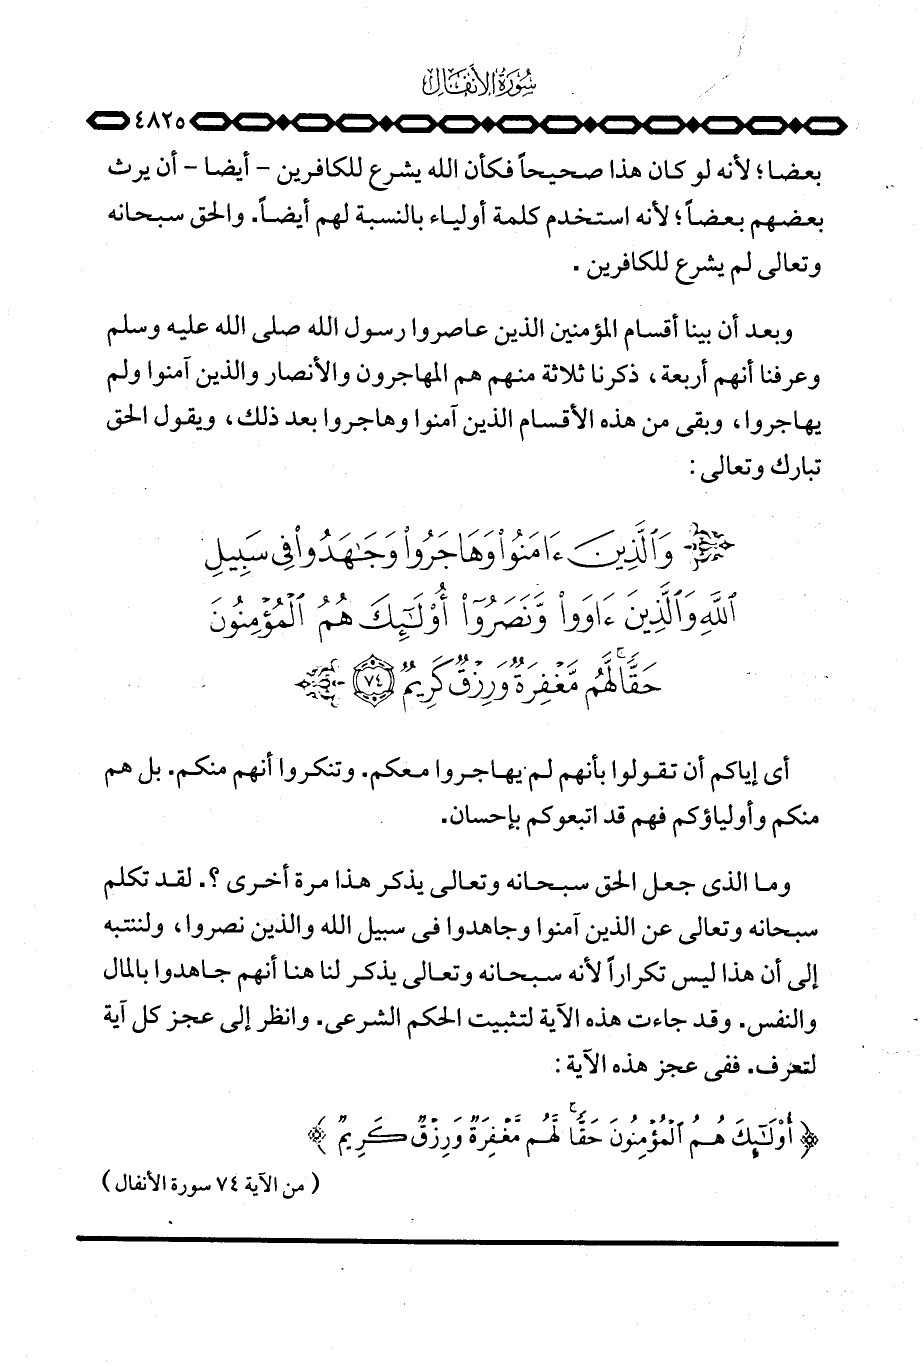 سُورَةُ الأَنفَالِ
٤٨٢٥
بعضا؛ لأنه لو كان هذا صحيحاً فكأن الله يشرع للكافرين - أيضا - أن يرث
بعضهم بعضاً؛ لأنه استخدم كلمة أولياء بالنسبة لهم أيضاً. والحق سبحانه
وتعالى لم يشرع للكافرين .
وبعد أن بينا أقسام المؤمنين الذين عاصروا رسول الله صلى الله عليه وسلم
وعرفنا أنهم أربعة، ذكرنا ثلاثة منهم هم المهاجرون والأنصار والذين آمنوا ولم
يهاجروا، وبقى من هذه الأقسام الذين آمنوا وهاجروا بعد ذلك، ويقول الحق
تبارك وتعالى :
وَٱلَّذِينَ ءَامَنُوا۟ وَهَاجَرُوا۟ وَجَٰهَدُوا۟ فِى سَبِيلِ
ٱللَّهِ وَٱلَّذِينَ ءَاوَوا۟ وَّنَصَرُوٓا۟ أُو۟لَٰٓئِكَ هُمُ ٱلْمُؤْمِنُونَ
حَقًّا ۚ لَّهُم مَّغْفِرَةٌ وَرِزْقٌ كَرِيمٌ ٧٤
أى إياكم أن تقولوا بأنهم لم يهاجروا معكم. وتنكروا أنهم منكم. بل هم
منكم وأولياؤكم فهم قد اتبعوكم بإحسان.
وما الذى جعل الحق سبحانه وتعالى يذكر هذا مرة أخرى ؟. لقد تكلم
سبحانه وتعالى عن الذين آمنوا وجاهدوا فى سبيل الله والذين نصروا، ولننتبه
إلى أن هذا ليس تكراراً لأنه سبحانه وتعالى يذكر لنا هنا أنهم جاهدوا بالمال
والنفس. وقد جاءت هذه الآية لتثبيت الحكم الشرعى. وانظر إلى عجز كل آية
لتعرف. ففى عجز هذه الآية :
﴿ أُو۟لَٰٓئِكَ هُمُ ٱلْمُؤْمِنُونَ حَقًّا ۚ لَّهُم مَّغْفِرَةٌ وَرِزْقٌ كَرِيمٌ ﴾
( من الآية ٧٤ سورة الأنفال )